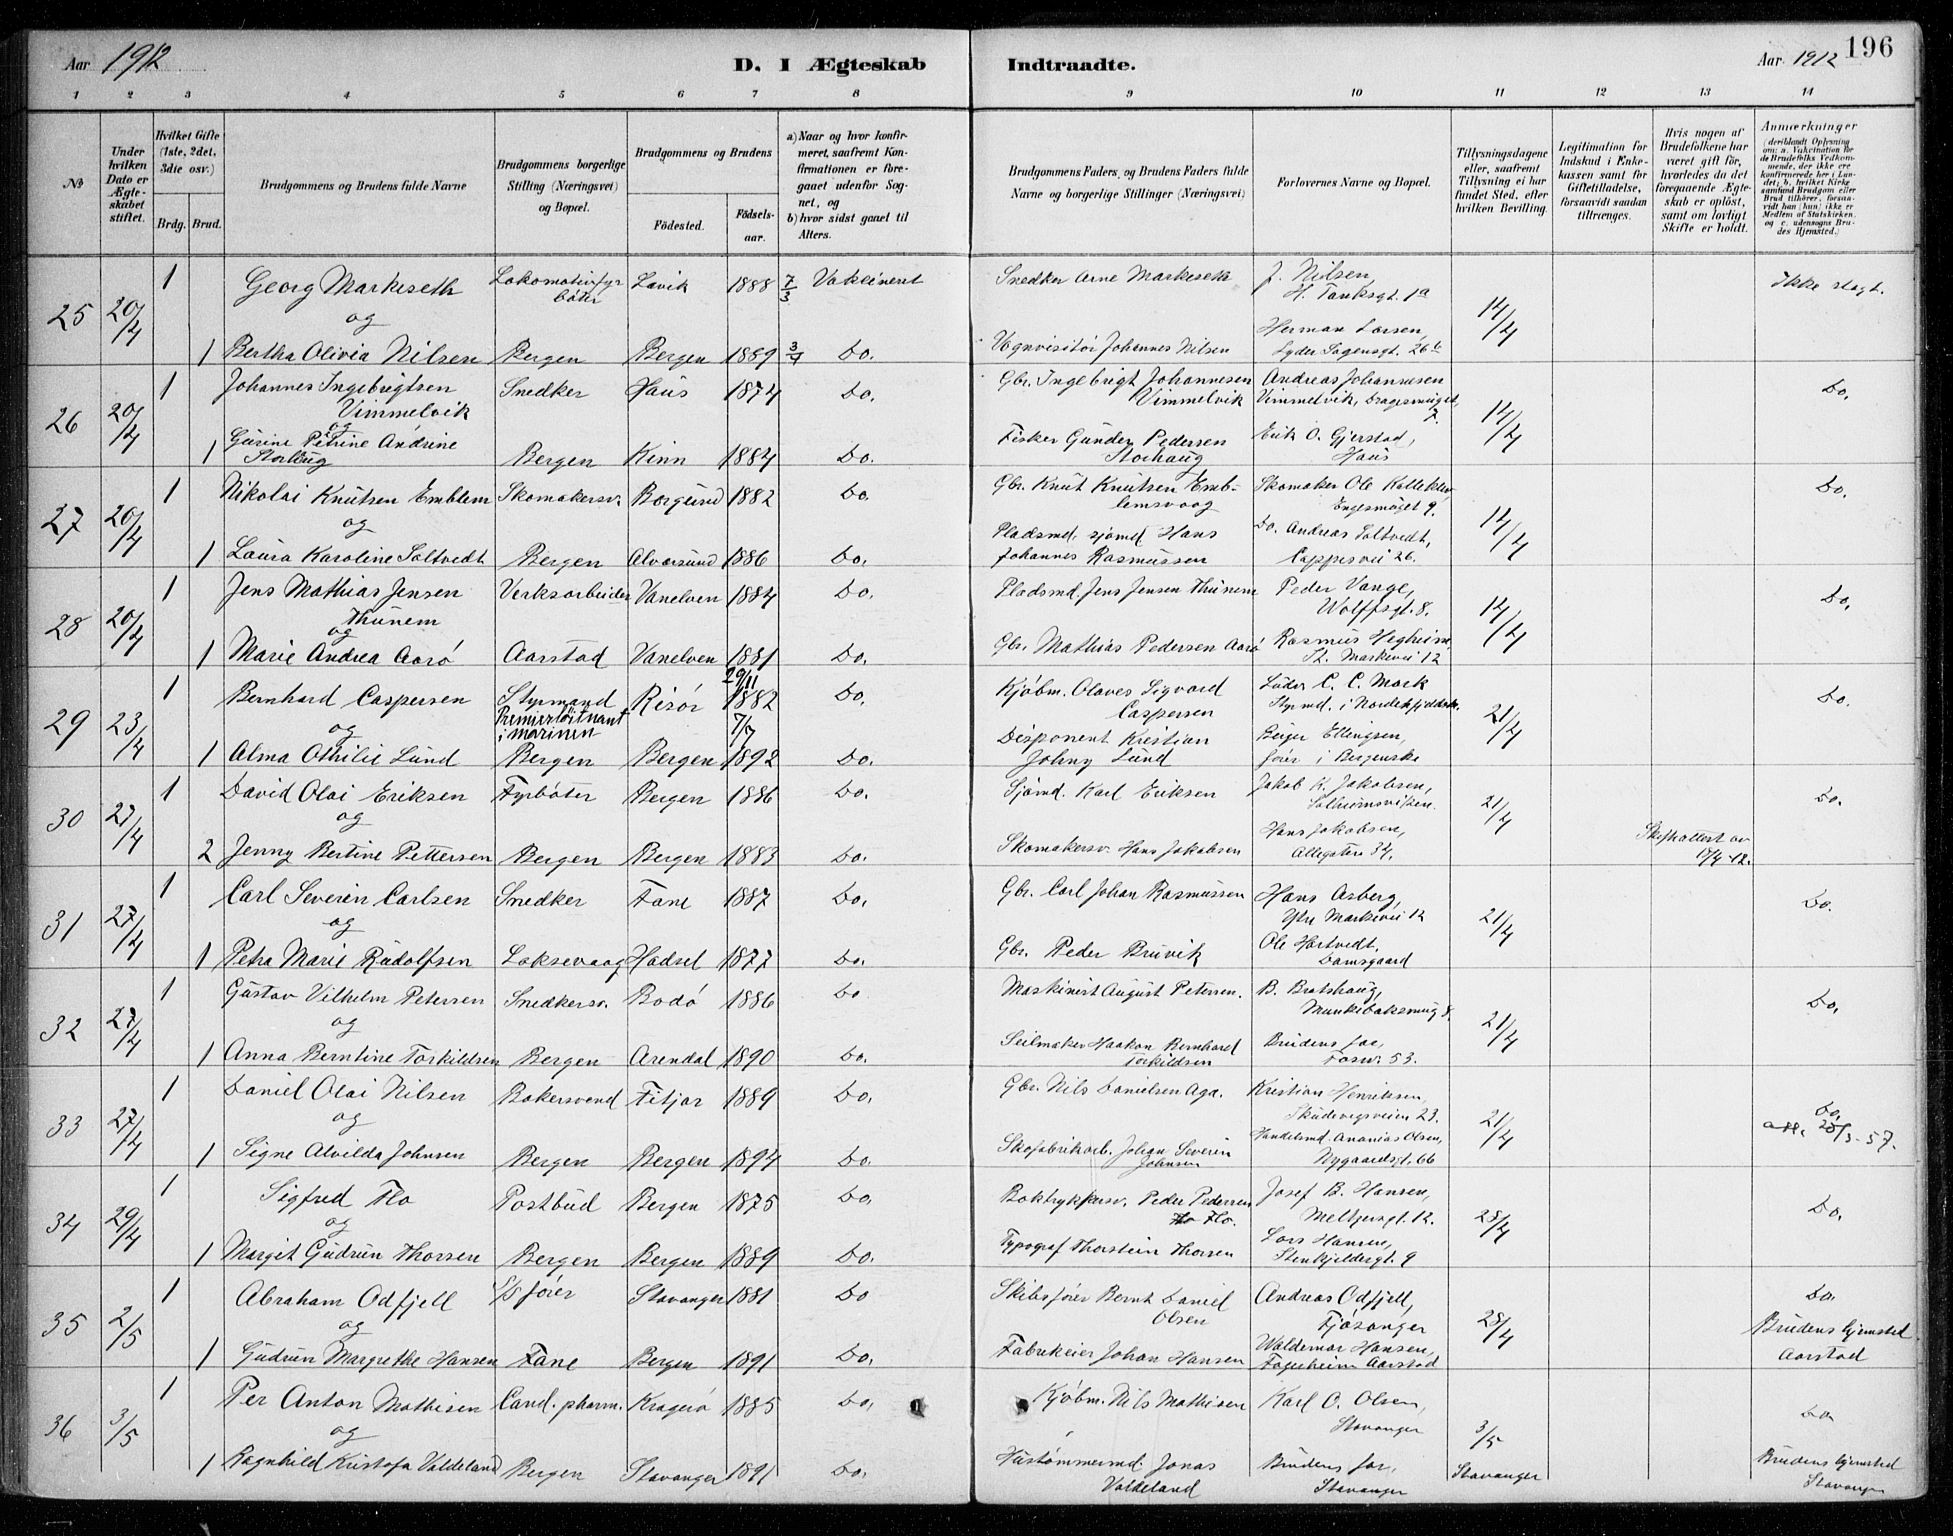 Aar 1912
D. I Ægteskab
Indtraadte.
Aar 1912 196
1 2 3 4 5 6 7 8 9 10 11 12 13 14
№
Under hvilken Dato er Ægteskabet stiftet.
Hvilket Gifte (1ste, 2det, 3die osv.)
Brdg. Brud.
Brudgommens og Brudens fulde Navne
Brudgommens borgerlige Stilling (Næringsvei) og Bopæl.
Brudgommens og Brudens
Fødested.
Fødselsaar.
a) Naar og hvor konfirmeret, saafremt Konfirmationen er foregaaet udenfor Sognet, og
b) hvor sidst gaael til Alters.
Brudgommens Faders og Brudens Faders fulde Navne og borgerlige Stillinger (Næringsvei)
Forlovernes Navne og Bopæl.
Tillysningsdagene eller, saafremt Tillysning ei har fundet Sted, efter hvilken Bevilling.
Legitimation for Indskud i Enkekassen samt for Giftetilladelse, forsaavidt saadan tiltrænges.
Hvis nogen af Brudefolkene har været gift før, hvorledes da det foregaaende Ægteskab er opløst, samt om lovligt Skifte er holdt.
Anmærkninger (deriblandt Oplysning om: a. Vakcination for de Brudefolks Vedkommende, der ikke ere konfirmerede her i Landet; b. hvilket Kirkesamfund Brudgom eller Brud tilhører, forsaavidt han (hun) ikke er Medlem af Statskirken, og c. udensogns Brudes Hjemsted.)
25 20/4 1 Georg Markeseth Lokomotivfyrbøter Lavik 1888 7/3 Vakcinert Snedker Arne Markeseth J. Nilsen, H. Tanksgt. 1a 14/4 Ikke slegt.
og
1 Bertha Olivia Nilsen Bergen Bergen 1889 3/7 Do. Vognvisitør Johannes Nilsen Herman Larsen, Lyder Sagensgt. 26b
26 20/4 1 Johannes Ingebrigtsen Vimmelvik Snedker Haus 1874 Do. Gbr. Ingebrigt Johannesen Vimmelvik Andreas Johannesen Vimmelvik, Dragsmuget 7. 14/4 Do.
og
1 Gurine Petrine Andrine Storhaug Bergen Kinn 1884 Do. Fisker Gunder Pedersen Storhaug Erik O. Gjerstad, Haus
27 20/4 1 Nikolai Knutsen Emblem Skomakersv. Borgund 1882 Do. Gbr. Knut Knutsen Emblemsvaag Skomaker Ole Kalleklev Engesmuget 9. 14/4 Do.
og
1 Laura Karoline Soltvedt Bergen Alversund 1886 Do. Pladsmd. sjømd Hans Johannes Rasmussen Do. Andreas Soltvedt, Cappesvei 26.
28 20/4 1 Jens Mathias Jensen Thunem Verksarbeider Vanelven 1884 Do. Pladsmd. Jens Jensen Thunem Peder Vange, Wolffsgt. 8. 14/4 Do.
og
1 Marie Andrea Aarø Aarstad Vanelven 1881 Do. Gbr. Mathias Pedersen Aarø Rasmus Hegheim, St. Markevei 12
29 23/4 1 Bernhard Caspersen Styrmand Premierløitnant i marinen Risør 29/11 1882 Do. Kjøbm. Olaves Sigvard Caspersen Lüder C. C. Mork Styrmd. i Nordenfjeldske. 21/4 Do.
og
1 Alma Othilie Lund Bergen Bergen 7/7 1892 Do. Disponent Kristian Johny Lund Birger Ellingsen, fører i Bergenske
30 27/4 1 David Olai Eriksen Fyrbøter Bergen 1886 Do. Sjømd. Karl Eriksen Jakob K. Jakobsen, Solheimsviken. 21/4 Do.
og
2 Jenny Bertine Pettersen Bergen Bergen 1883 Do. Skomakersv. Hans Jakobsen Hans Jakobsen, Allegaten 34. Skifteattest av 18/4-12.
31 27/4 1 Carl Severin Carlsen Snedker Fane 1887 Do. Gbr. Carl Johan Rasmussen Hans Asberg, Ytre Markevei 12 21/4 Do.
og
1 Petra Marie Rudolfsen Laksevaag Hadsel 1877 Do. Gbr. Peder Bruvik Ole Hartvedt, Damsgaard
32 27/4 1 Gustav Vilhelm Petersen Snedkersv. Bodø 1886 Do Maskinist August Petersen. B. Bratshaug, Munkebaksmug 8. 21/4 Do.
og
1 Anna Berntine Torkildsen Bergen Arendal 1890 Do. Seilmaker Haakon Bernhard Torkildsen Brudens far, 53.
33 27/4 1 Daniel Olai Nilsen Bakersvend Fitjar 1889 Do. Gbr. Nils Danielsen Aga. Kristian Henriksen, Skudevigsveien 23. 21/4 Do. att. 25/3-57.
og
1 Signe Alvilda Johnsen Bergen Bergen 1894 Do. Skofabrikarb. Johan Severin Johnsen Handelsmd. Ananias Olsen, Nygaardsgt. 66
34 29/4 1 Sigfred Flo Postbud Bergen 1875 Do. Boktrykkersv. Peder Pedersen Flo. Josef B. Hansen, Meltzersgt. 12. 28/4 Do.
og
1 Margit Gudrun Thorsen Bergen Bergen 1889 Do. Typograf Thorstein Thorsen Lars Hansen, Stenkjeldergt. 9
35 2/5 1 Abraham Odfjell S/S fører Stavanger 1881 Do Skibsfører Bernt Daniel Olsen Andreas Odfjell, Fjøsanger 28/4 Do.
og
1 Gudrun Margrethe Hansen Fane Bergen 1891 Do. Fabrikeier Johan Hansen Waldemar Hansen, Fageheim Aarstad Brudens hjemsted Aarstad
36 3/5 1 Per Anton Mathisen Cand. pharm. Kragerø 1885 Do. Kjøbm. Nils Mathisen Karl O. Olsen, Stavanger 3/5 Do.
og
1 Ragnhild Kristofa Valdeland Bergen Stavanger 1891 Do. Hustømmermd. Jonas Valdeland Brudens far, Stavanger Stavanger Brudens hjemsted Stavanger